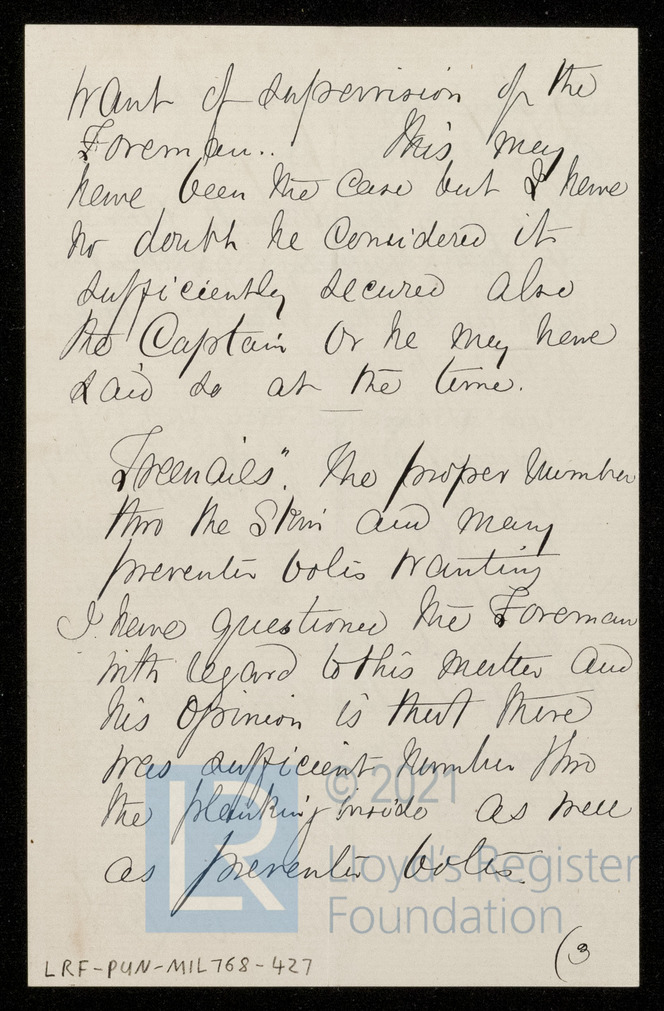 want of supervision of the
Foreman.. This may
have been the case but I have
no doubt he considered it
sufficiently secured also
the Captain or he may have
said so at the time.
Treenails". The proper number
thro the Skin and many
preventer bolts wanting
I have questioned the Foreman
with regard to this matter and
his opinion is that there
was sufficient number thro
the planking inside as well
as preventer bolts.
(3
LRF-PUN-MIL768-427
LR
© 2021
Lloyd's Register
Foundation